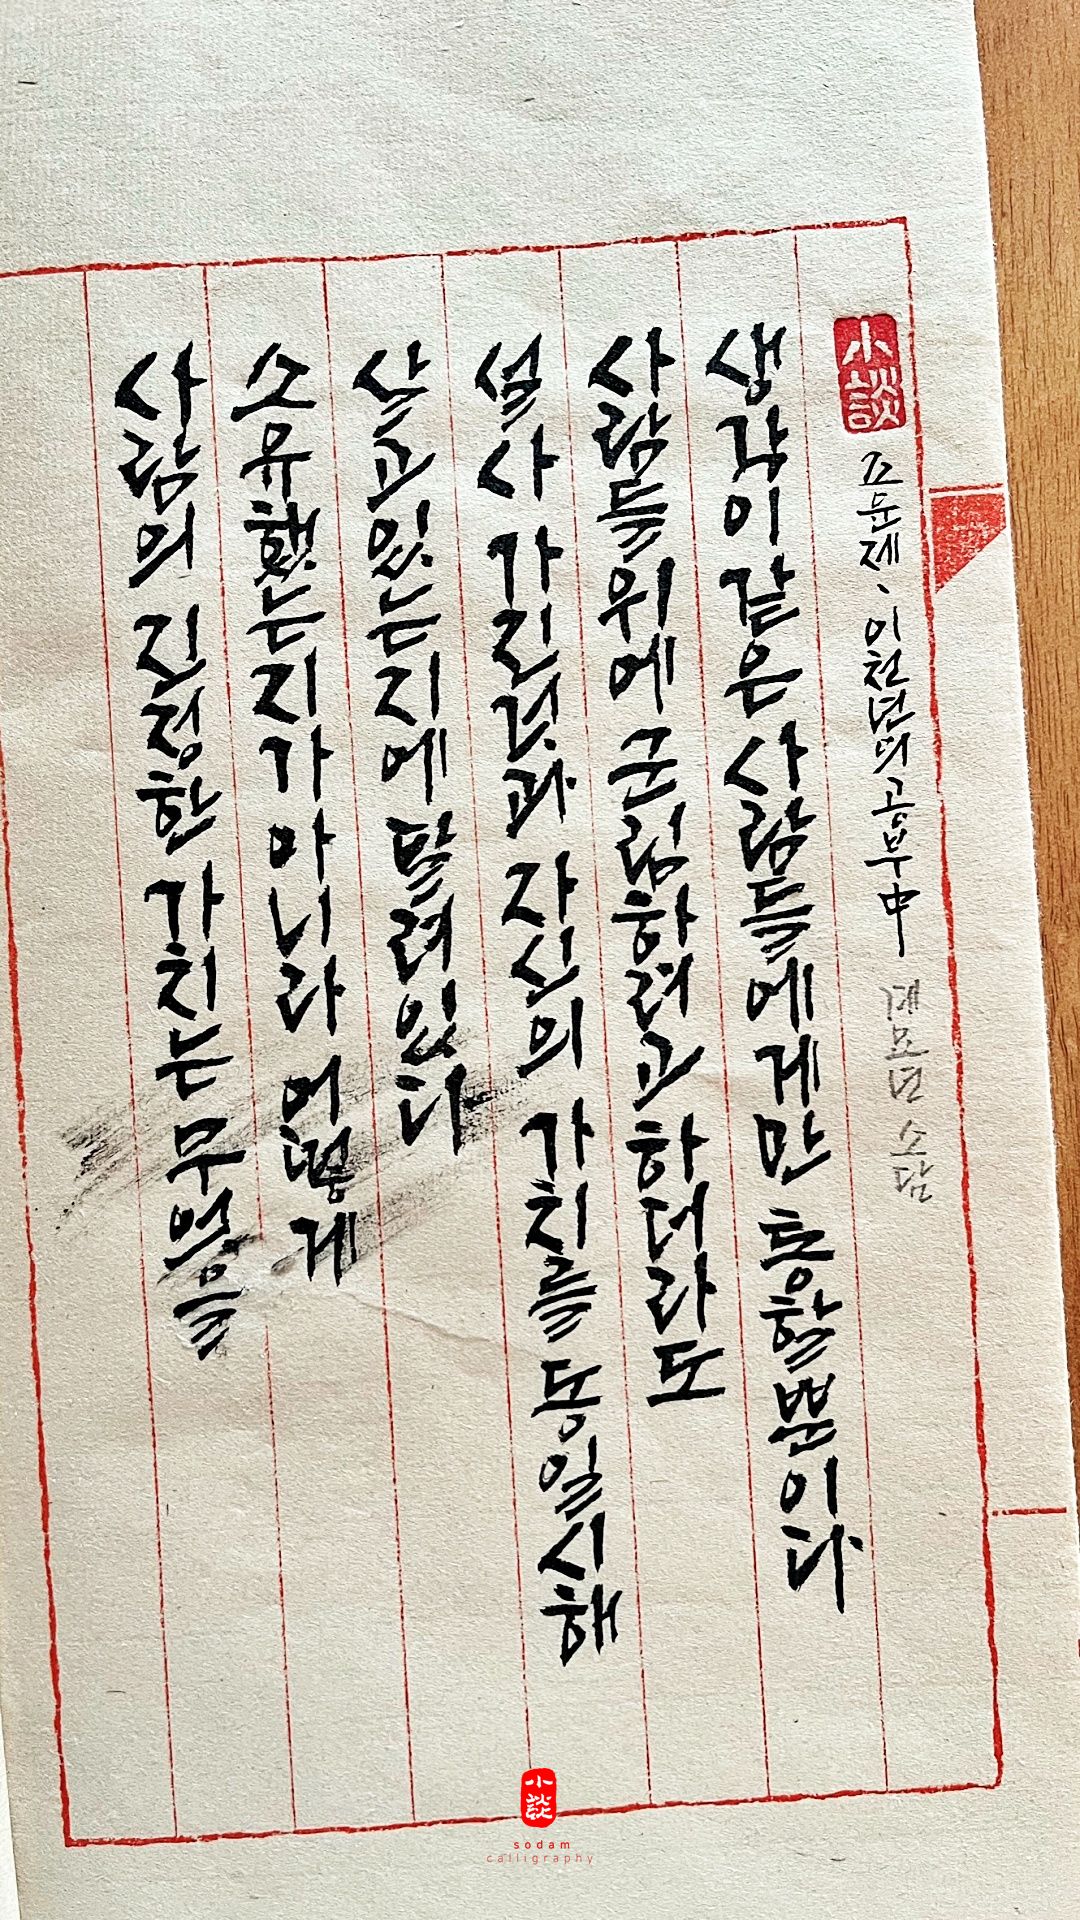 사람의 진정한 가치는 무엇을
소유했는지가 아니라 어떻게
살고있는지에 달려있다
설사 가진것과 자신의 가치를 동일시해
사람들위에 군림하려고하더라도
생각이같은 사람들에게만 통할뿐이다
小談
조윤제、이천년의공부中 계묘년 소담
小談
sodam
calligraphy